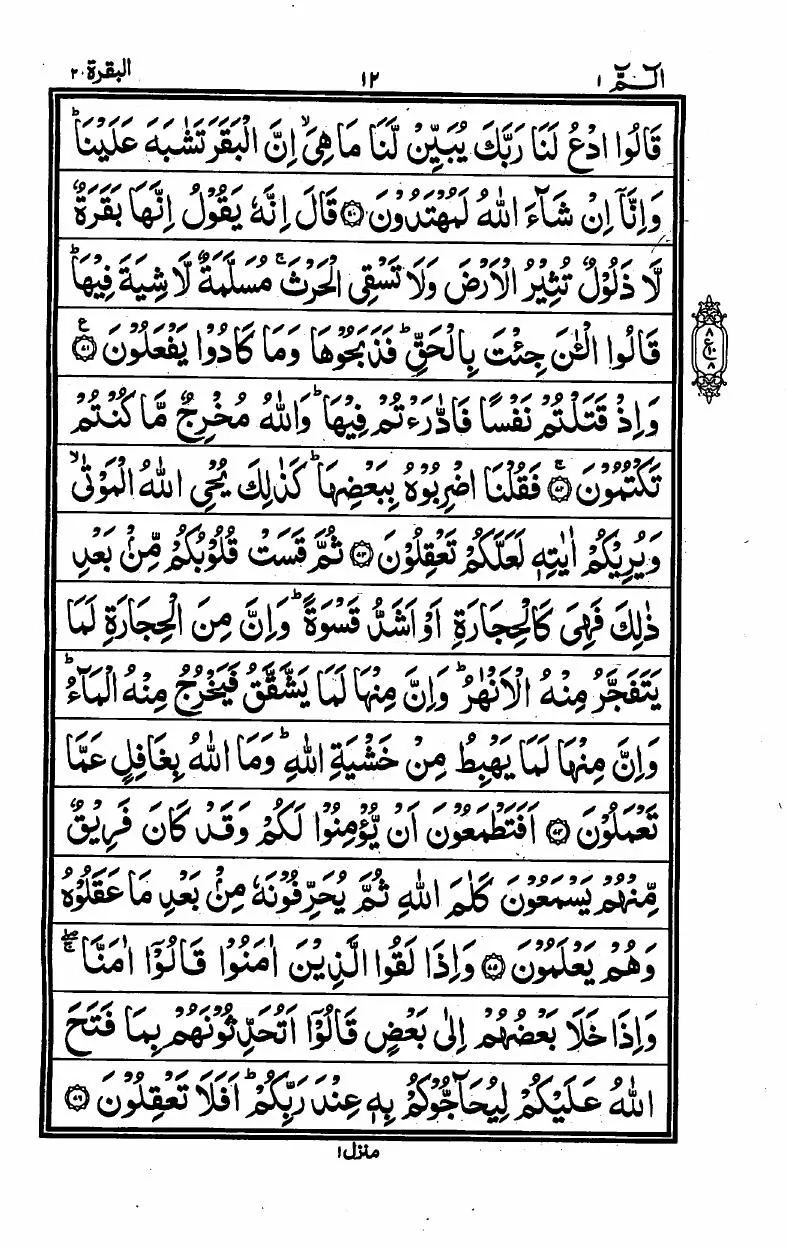 الٓـمّٓ ١ ١٢ البقرة ٢
قَالُوا ادْعُ لَنَا رَبَّكَ يُبَيِّنْ لَّنَا مَا هِيَ ۙ اِنَّ الْبَقَرَ تَشٰبَهَ عَلَيْنَا ؕ
وَاِنَّاۤ اِنْ شَآءَ اللّٰهُ لَمُهْتَدُوْنَ ﴿۷۰﴾ قَالَ اِنَّهٗ يَقُوْلُ اِنَّهَا بَقَرَةٌ
لَّا ذَلُوْلٌ تُثِيْرُ الْاَرْضَ وَلَا تَسْقِي الْحَرْثَ ۚ مُسَلَّمَةٌ لَّا شِيَةَ فِيْهَا ؕ
قَالُوا الْـٰٔنَ جِئْتَ بِالْحَقِّ ؕ فَذَبَحُوْهَا وَمَا كَادُوْا يَفْعَلُوْنَ ﴿۷۱﴾ ع
٨ ع ١٠ ٨
وَاِذْ قَتَلْتُمْ نَفْسًا فَادّٰرَءْتُمْ فِيْهَا ؕ وَاللّٰهُ مُخْرِجٌ مَّا كُنْتُمْ
تَكْتُمُوْنَ ﴿۷۲﴾ ۚ فَقُلْنَا اضْرِبُوْهُ بِبَعْضِهَا ؕ كَذٰلِكَ يُحْيِ اللّٰهُ الْمَوْتٰى ۙ
وَيُرِيْكُمْ اٰيٰتِهٖ لَعَلَّكُمْ تَعْقِلُوْنَ ﴿۷۳﴾ ثُمَّ قَسَتْ قُلُوْبُكُمْ مِّنْۢ بَعْدِ
ذٰلِكَ فَهِيَ كَالْحِجَارَةِ اَوْ اَشَدُّ قَسْوَةً ؕ وَاِنَّ مِنَ الْحِجَارَةِ لَمَا
يَتَفَجَّرُ مِنْهُ الْاَنْهٰرُ ؕ وَاِنَّ مِنْهَا لَمَا يَشَّقَّقُ فَيَخْرُجُ مِنْهُ الْمَآءُ ؕ
وَاِنَّ مِنْهَا لَمَا يَهْبِطُ مِنْ خَشْيَةِ اللّٰهِ ؕ وَمَا اللّٰهُ بِغَافِلٍ عَمَّا
تَعْمَلُوْنَ ﴿۷۴﴾ اَفَتَطْمَعُوْنَ اَنْ يُّؤْمِنُوْا لَكُمْ وَقَدْ كَانَ فَرِيْقٌ
مِّنْهُمْ يَسْمَعُوْنَ كَلٰمَ اللّٰهِ ثُمَّ يُحَرِّفُوْنَهٗ مِنْۢ بَعْدِ مَا عَقَلُوْهُ
وَهُمْ يَعْلَمُوْنَ ﴿۷۵﴾ وَاِذَا لَقُوا الَّذِيْنَ اٰمَنُوْا قَالُوْۤا اٰمَنَّا ۖۚ
وَاِذَا خَلَا بَعْضُهُمْ اِلٰى بَعْضٍ قَالُوْۤا اَتُحَدِّثُوْنَهُمْ بِمَا فَتَحَ
اللّٰهُ عَلَيْكُمْ لِيُحَآجُّوْكُمْ بِهٖ عِنْدَ رَبِّكُمْ ؕ اَفَلَا تَعْقِلُوْنَ ﴿۷۶﴾
منزل ١